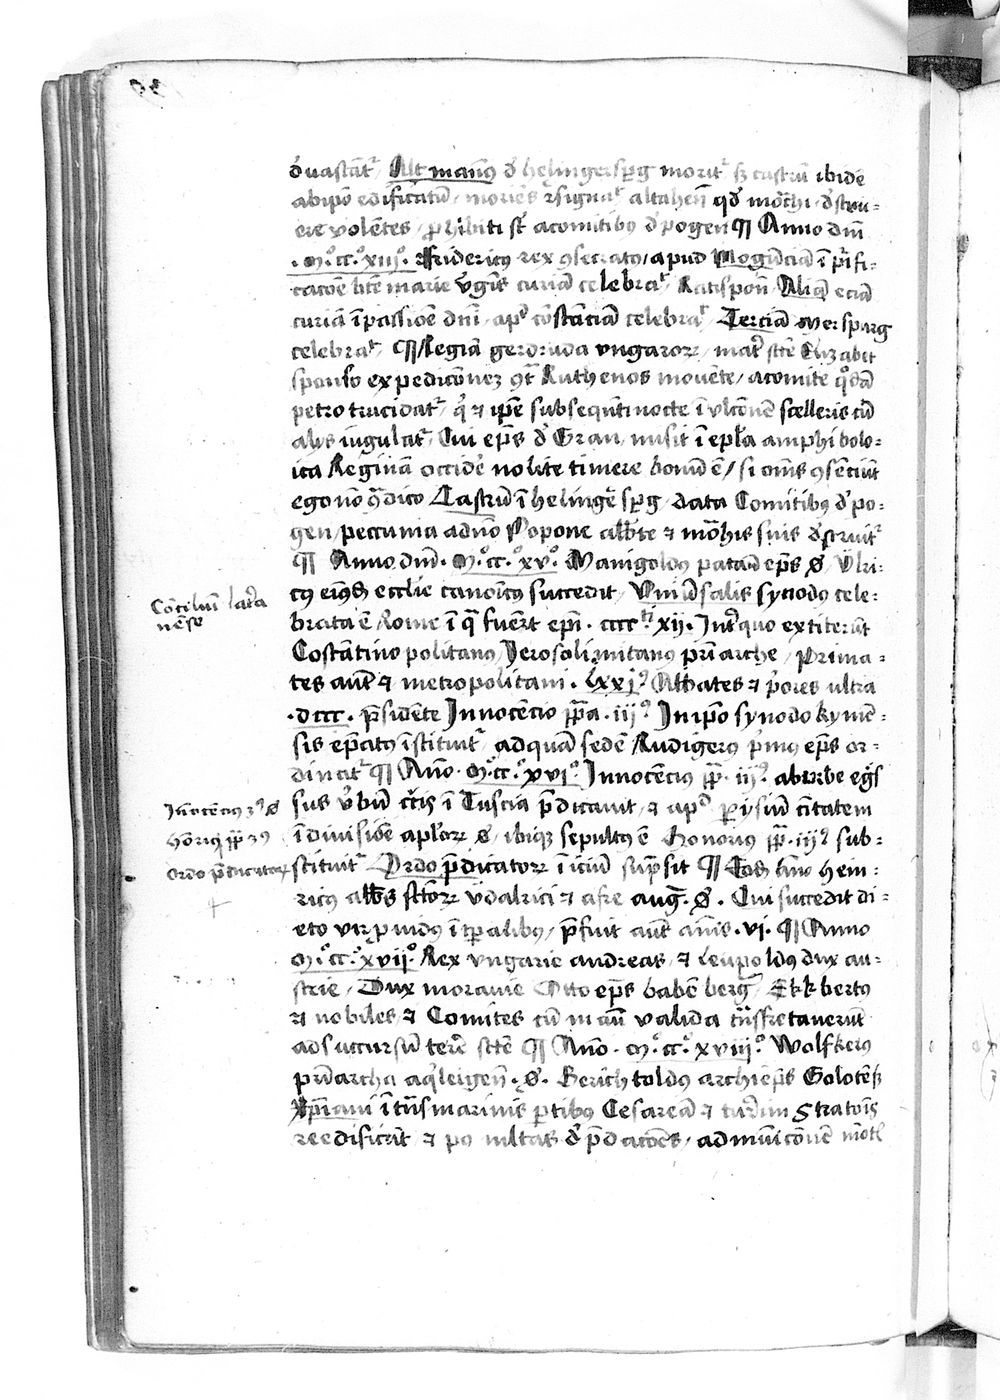 d'uastat᷑ Altman9 d' helingersp̱g morit᷑ sz castrū ibidē
ab ip̄o edificatū / moriēs ɔsignat᷑ altaheñ qd' mōchi / d'stru-
ere volētes / ꝓhibiti st̄ a comitib9 d' pogen ¶ Anno dnī
.M°.cc°.xiii°. Fridericus rex ɔsecrat9 / apud Mogūciā ī p̄ifi-
catōe bt̄e marie v̓gīs curiā celebrat᷑ Ratispoñ Aliā eciā
curiā ī passiōe dnī ap᷑ cōstāciā celebrat᷑ Terciā Ayersparg
celebrat᷑ ¶ Regiā gerdruda vngaroꝝ / mat᷑ sctē Elizabet
sponso expedicōnez ɔt᷑ Ruthenos mouēte / a comite qᵒdā
petro trucidat᷑ q᷑ ⁊ ip̄e subsequēti nocte ī vlcōnē sceleris cū
alijs iugulat᷑ Cui ep̄s d' Gran misit ī ep̄la amphibolo-
ica Reginā occid'e nolite timere bonū ē / si om̄s ɔsēciūt
ego nō ɔ̄dico Castrū ī helingēsp̱g data Comitib9 d' po-
gen / peccunia ad nō Popone abb̄te ⁊ mōchis suis d'struit᷑
¶ Anno dnī. M°.cc°.xv°. Manigold9 patau̓ ep̄s ꝋ Vlri-
c9 ei9d ecclie canoīc9 succedit / Vniu̓salis synod9 cele-
brata ē Rome ī q̄ fuert̄ ep̄i. cccc.xii. Int᷑ quo extiterūt
Costātinopolitan9 / Jerosolimitan9 pri̓arche / Prima-
tes aut̄ ⁊ metropolitani. lxxi° Abbates ⁊ p̓ores ultra
.dccc. p̄sidēte Innocēcio pp̄a.iii° In ip̄o synodo kymē-
sis ep̄at9 īstituit᷑ ad quā sedē Rudiger9 p̓m9 ep̄s or-
dinat᷑ ¶ Año. M°.cc°.xvi°. Innocēcius pp̄. iii° ab urbe eg̓s
sus v̓bū cr̄cis ī Tuscia p̄dicauit ⁊ ap᷑ perusiū c̄itatem
ī diuisiōe ap̄loꝝ ꝋ ibiqꝫ sepult9 ē Honori9 pp̄.iii° sub-
stituit᷑ Ordo p̄dicatoꝝ īiciū sūpsit ¶ Eodē āno hein-
ric9 abb̄s scto̓ꝝ vdalrici ⁊ afre aug̓. ꝋ. Cui succedit di-
eto vir ꝓuid9 ī tp̄alibus / p̄fuit aut̄ ānis.vi. ¶ Anno
M°.cc°.xvii°. Rex vngarie andreas ⁊ leupold9 dux au-
strie / Dux morauie Otto ep̄s babēberg̓ Ekkbert9
⁊ nobiles ⁊ Comites cū manū valida t̄nsfretauerūt
ad succursū terre sctē ¶ Año. M°.cc°.xviii°. Wolfker9
pri̓archa aq̓leigeñ. ꝋ. Berichtold9 archiep̄s Coloceñ
Xp̄iani ī t̄nsmarinis ꝑtib9 Cesareā ⁊ turrim Stratoīs
reedificāt ⁊ p9 ml̄tas d'p̄datōes / ad mūicōnē mōtꝭ
Cōciliū lat̓a
nēse
Innocēcius 3° ꝋ
honori9 pp̄ 3°
ordo p̄dicatoꝝ